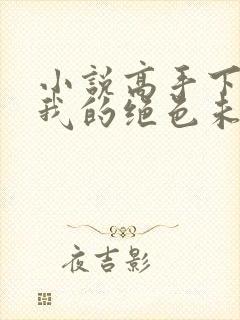 小說高手下
我的绝色未
夜吉影